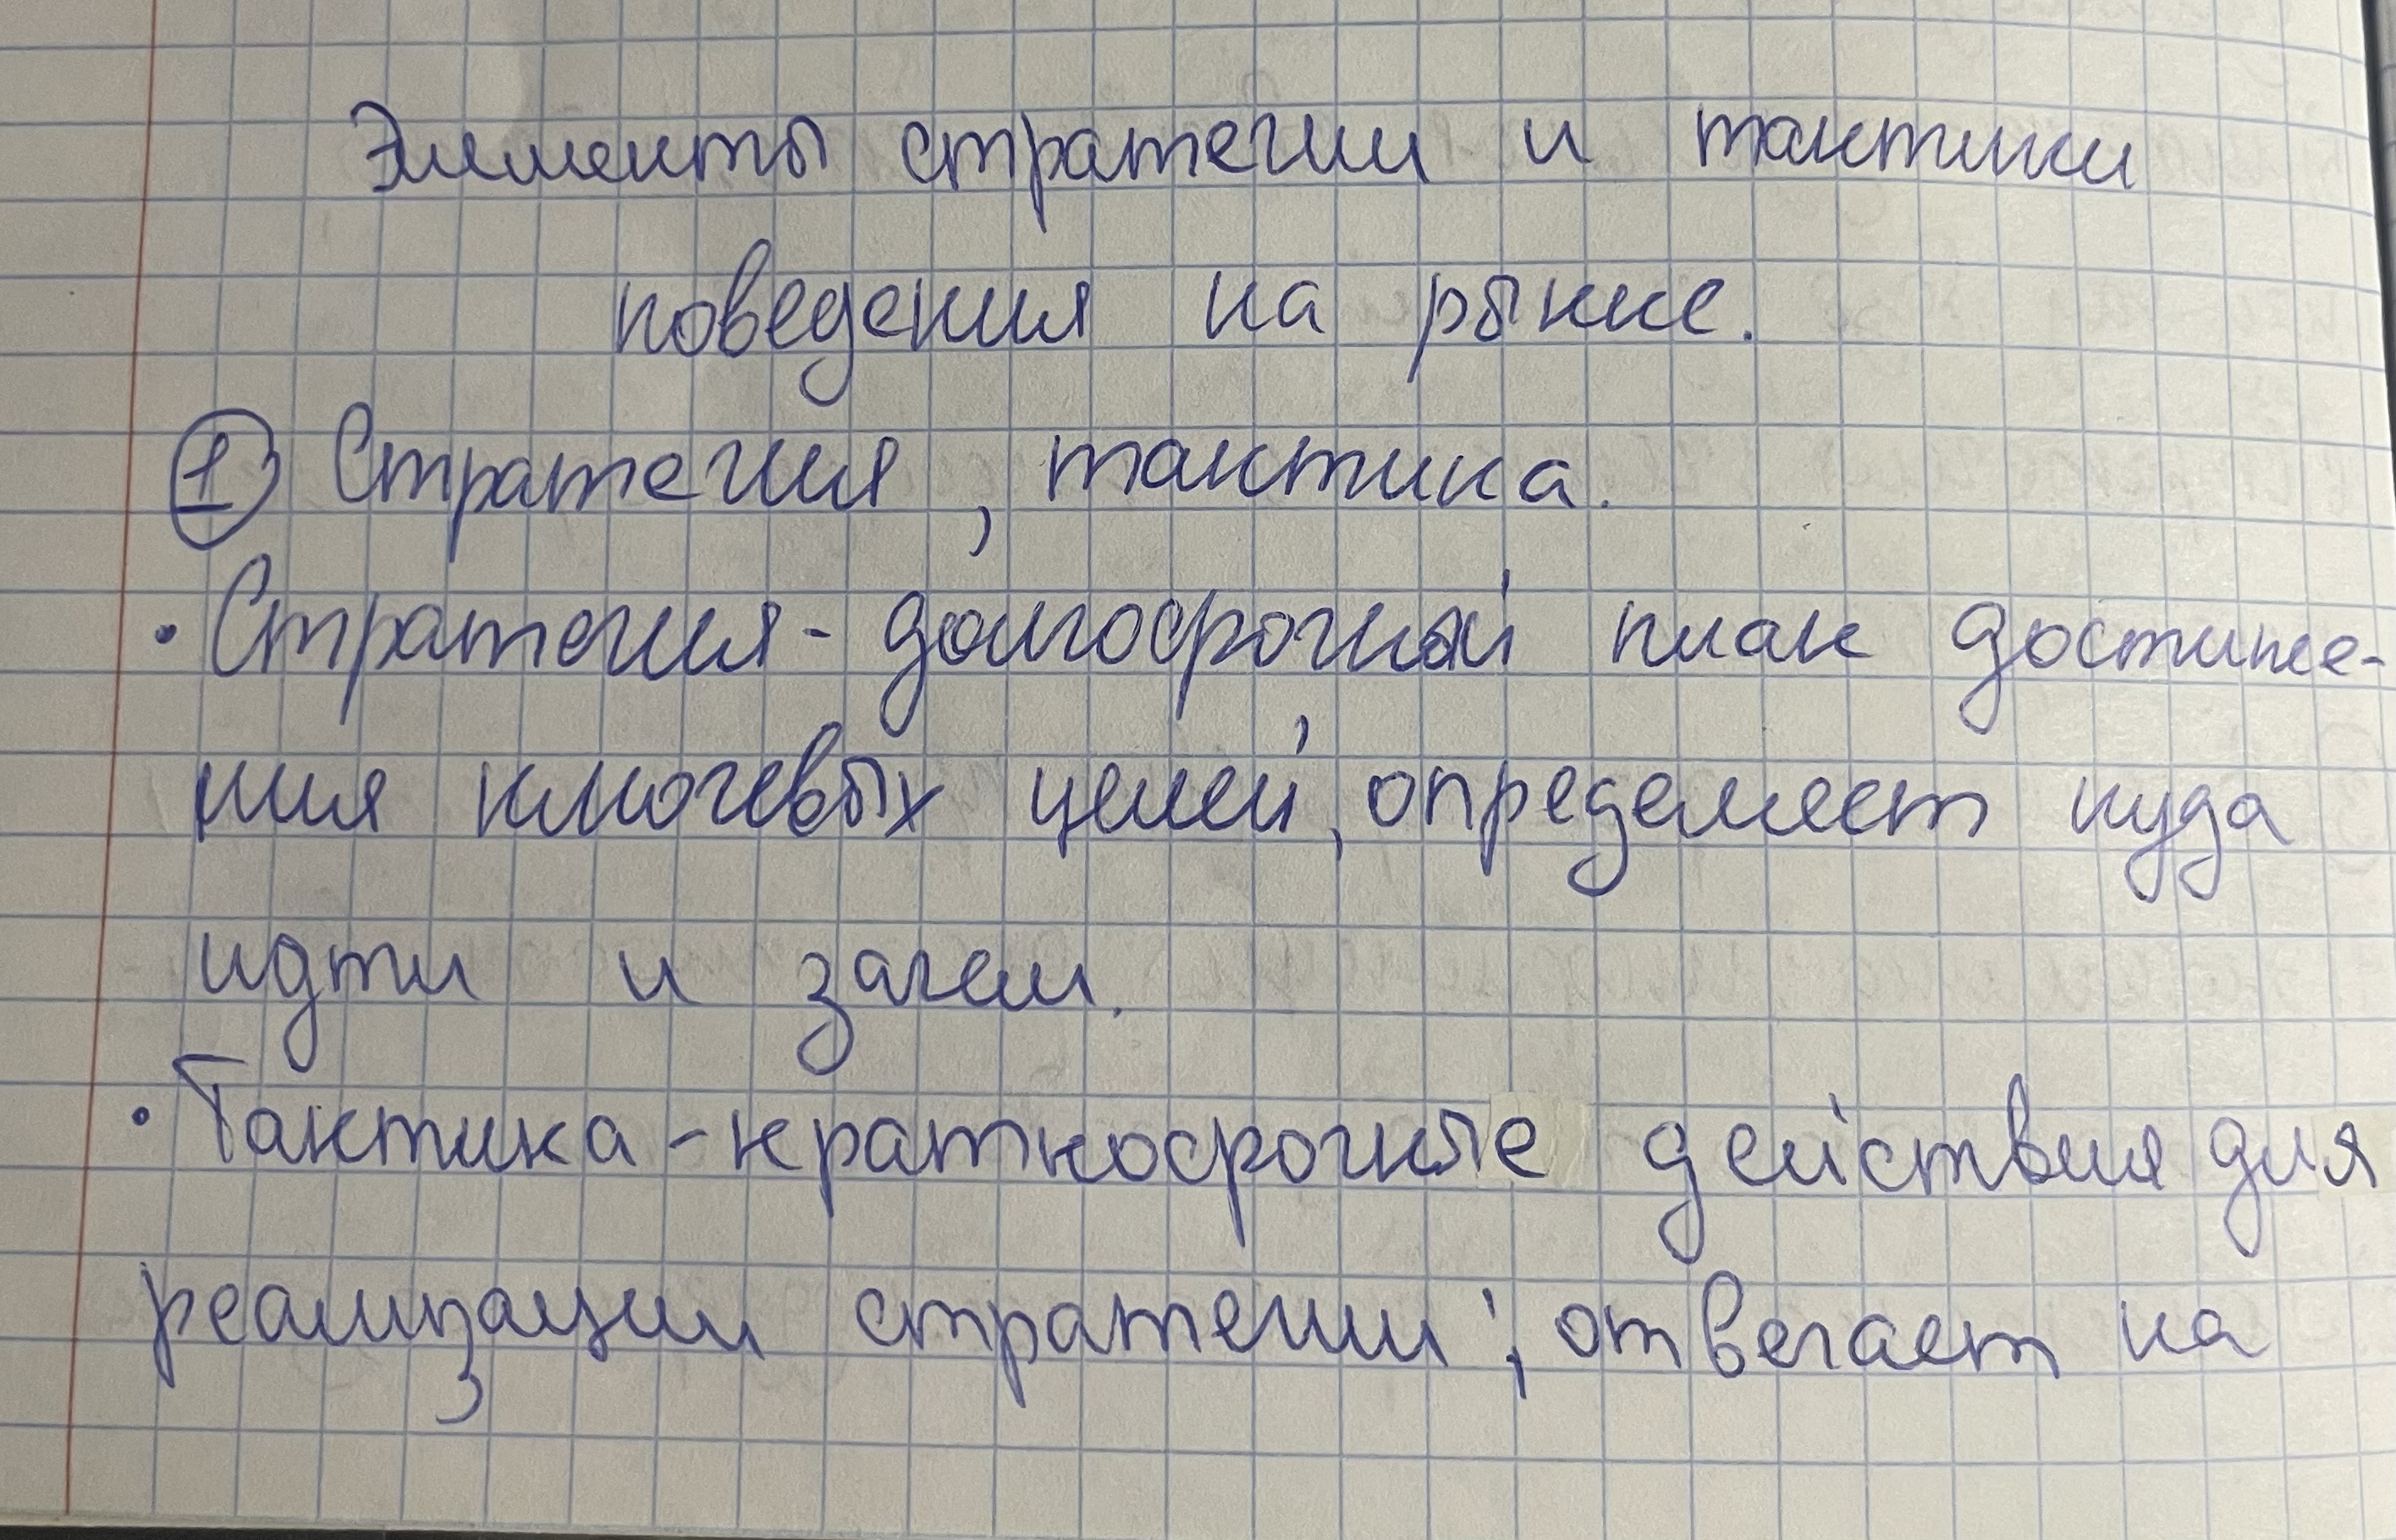 Элементы стратегии и тактики
поведения на рынке.
① Стратегия, тактика.
• Стратегия - долгосрочный план достиже-
ния ключевых целей, определяет куда
идти и зачем.
• Тактика - краткосрочные действия для
реализации стратегии; отвечает на